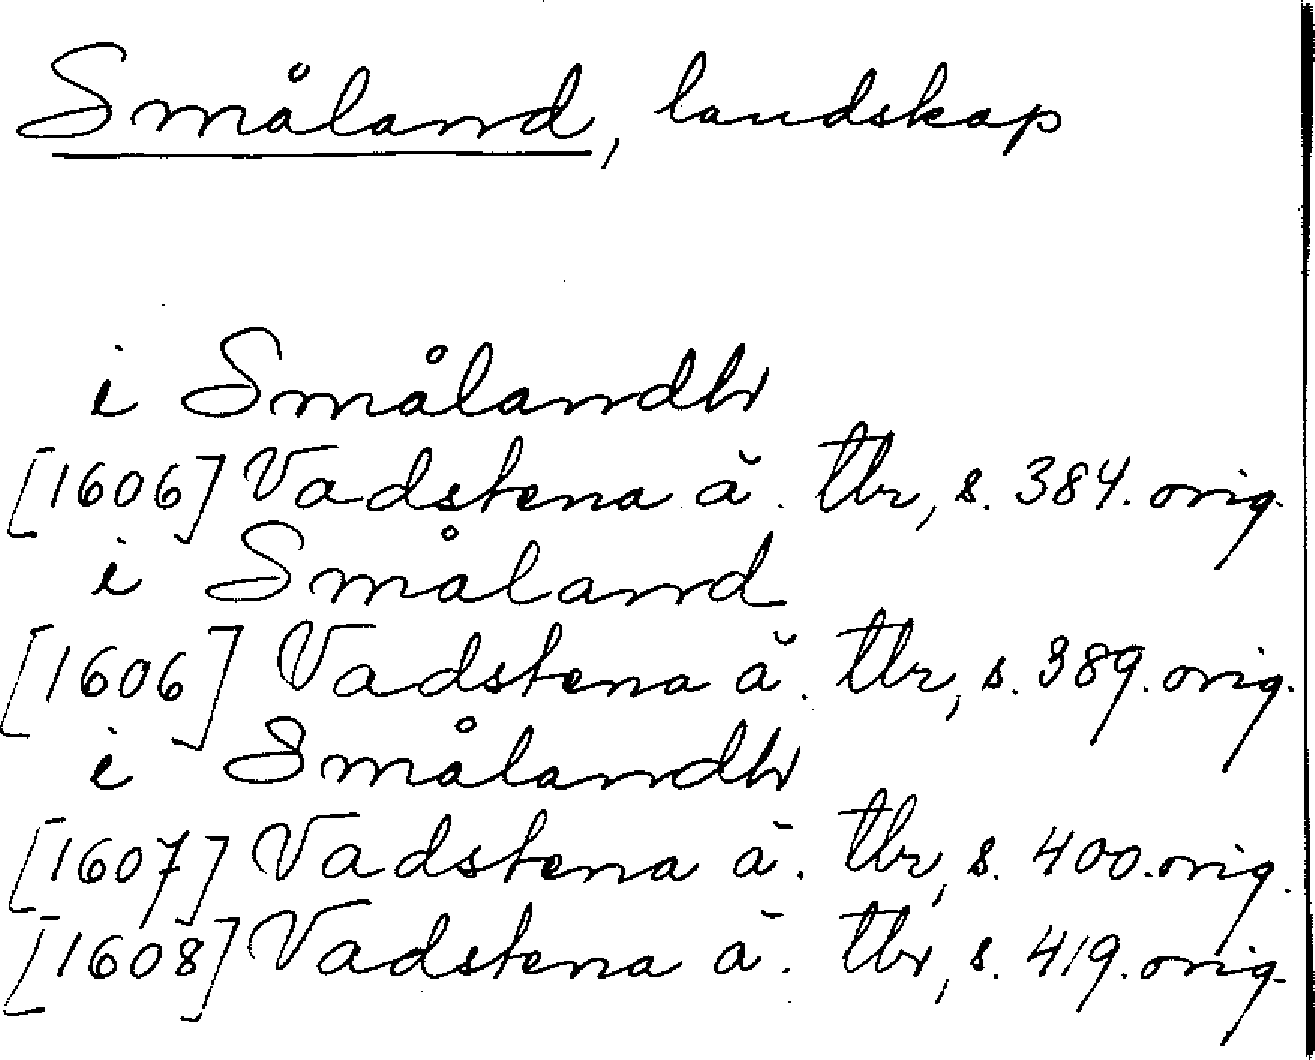 Småland, landskap
i Smålandh
[1606] Vadstena ä. tbr, s. 384. orig.
i Småland
[1606] Vadstena ä. tbr, s. 389. orig.
i Smålandh
[1607] Vadstena ä. tbr, s. 400. orig.
[1608] Vadstena ä. tbr, s. 419. orig.